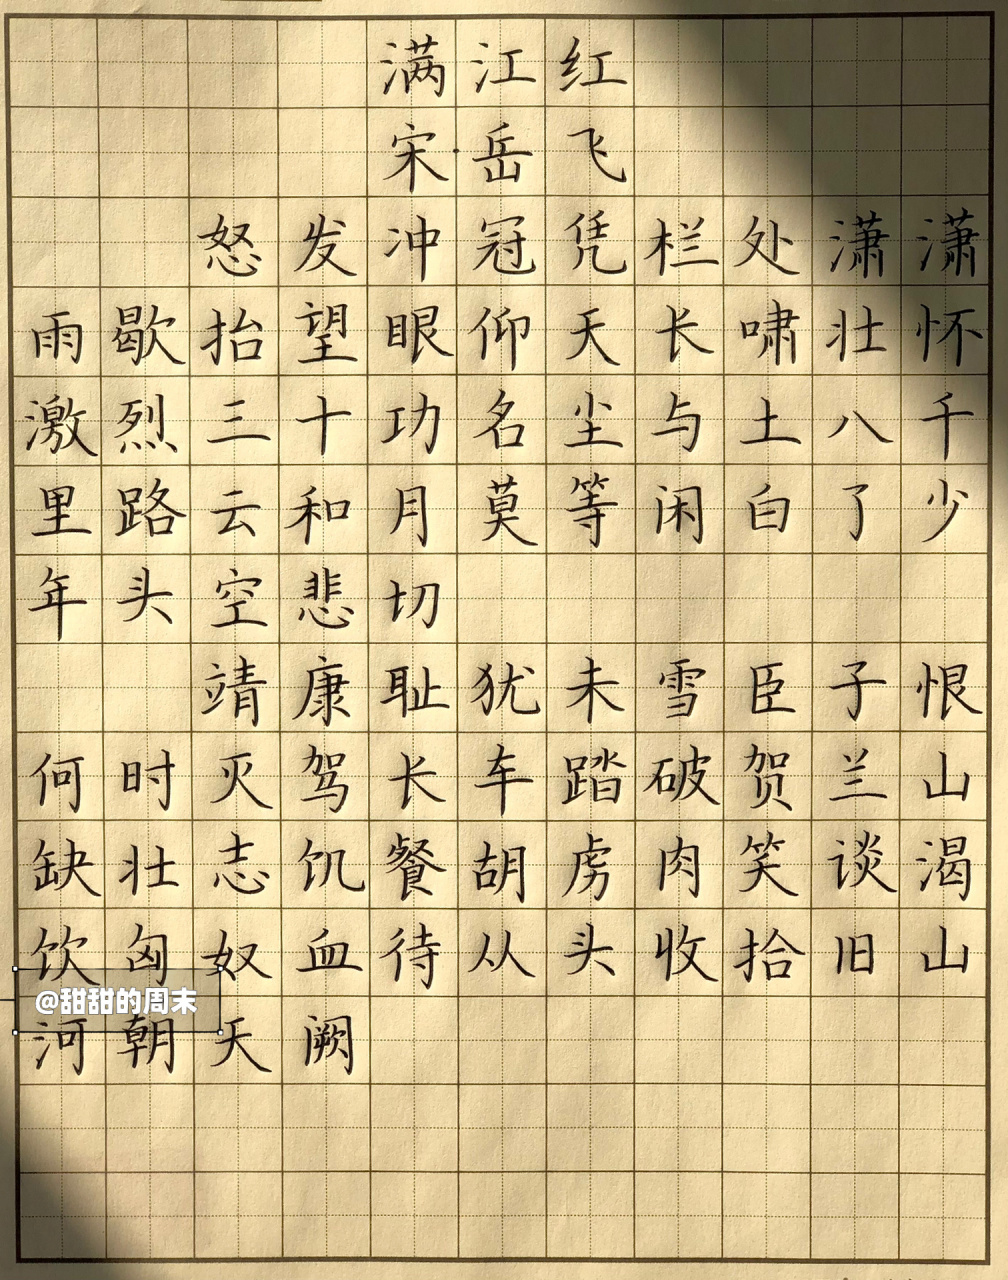 满江红
宋·岳飞
怒发冲冠凭栏处潇潇
雨歇抬望眼仰天长啸壮怀
激烈三十功名尘与土八千
里路云和月莫等闲白了少
年头空悲切
靖康耻犹未雪臣子恨
何时灭驾长车踏破贺兰山
缺壮志饥餐胡虏肉笑谈渴
饮匈奴血待从头收拾旧山
河朝天阙
@甜甜的周末